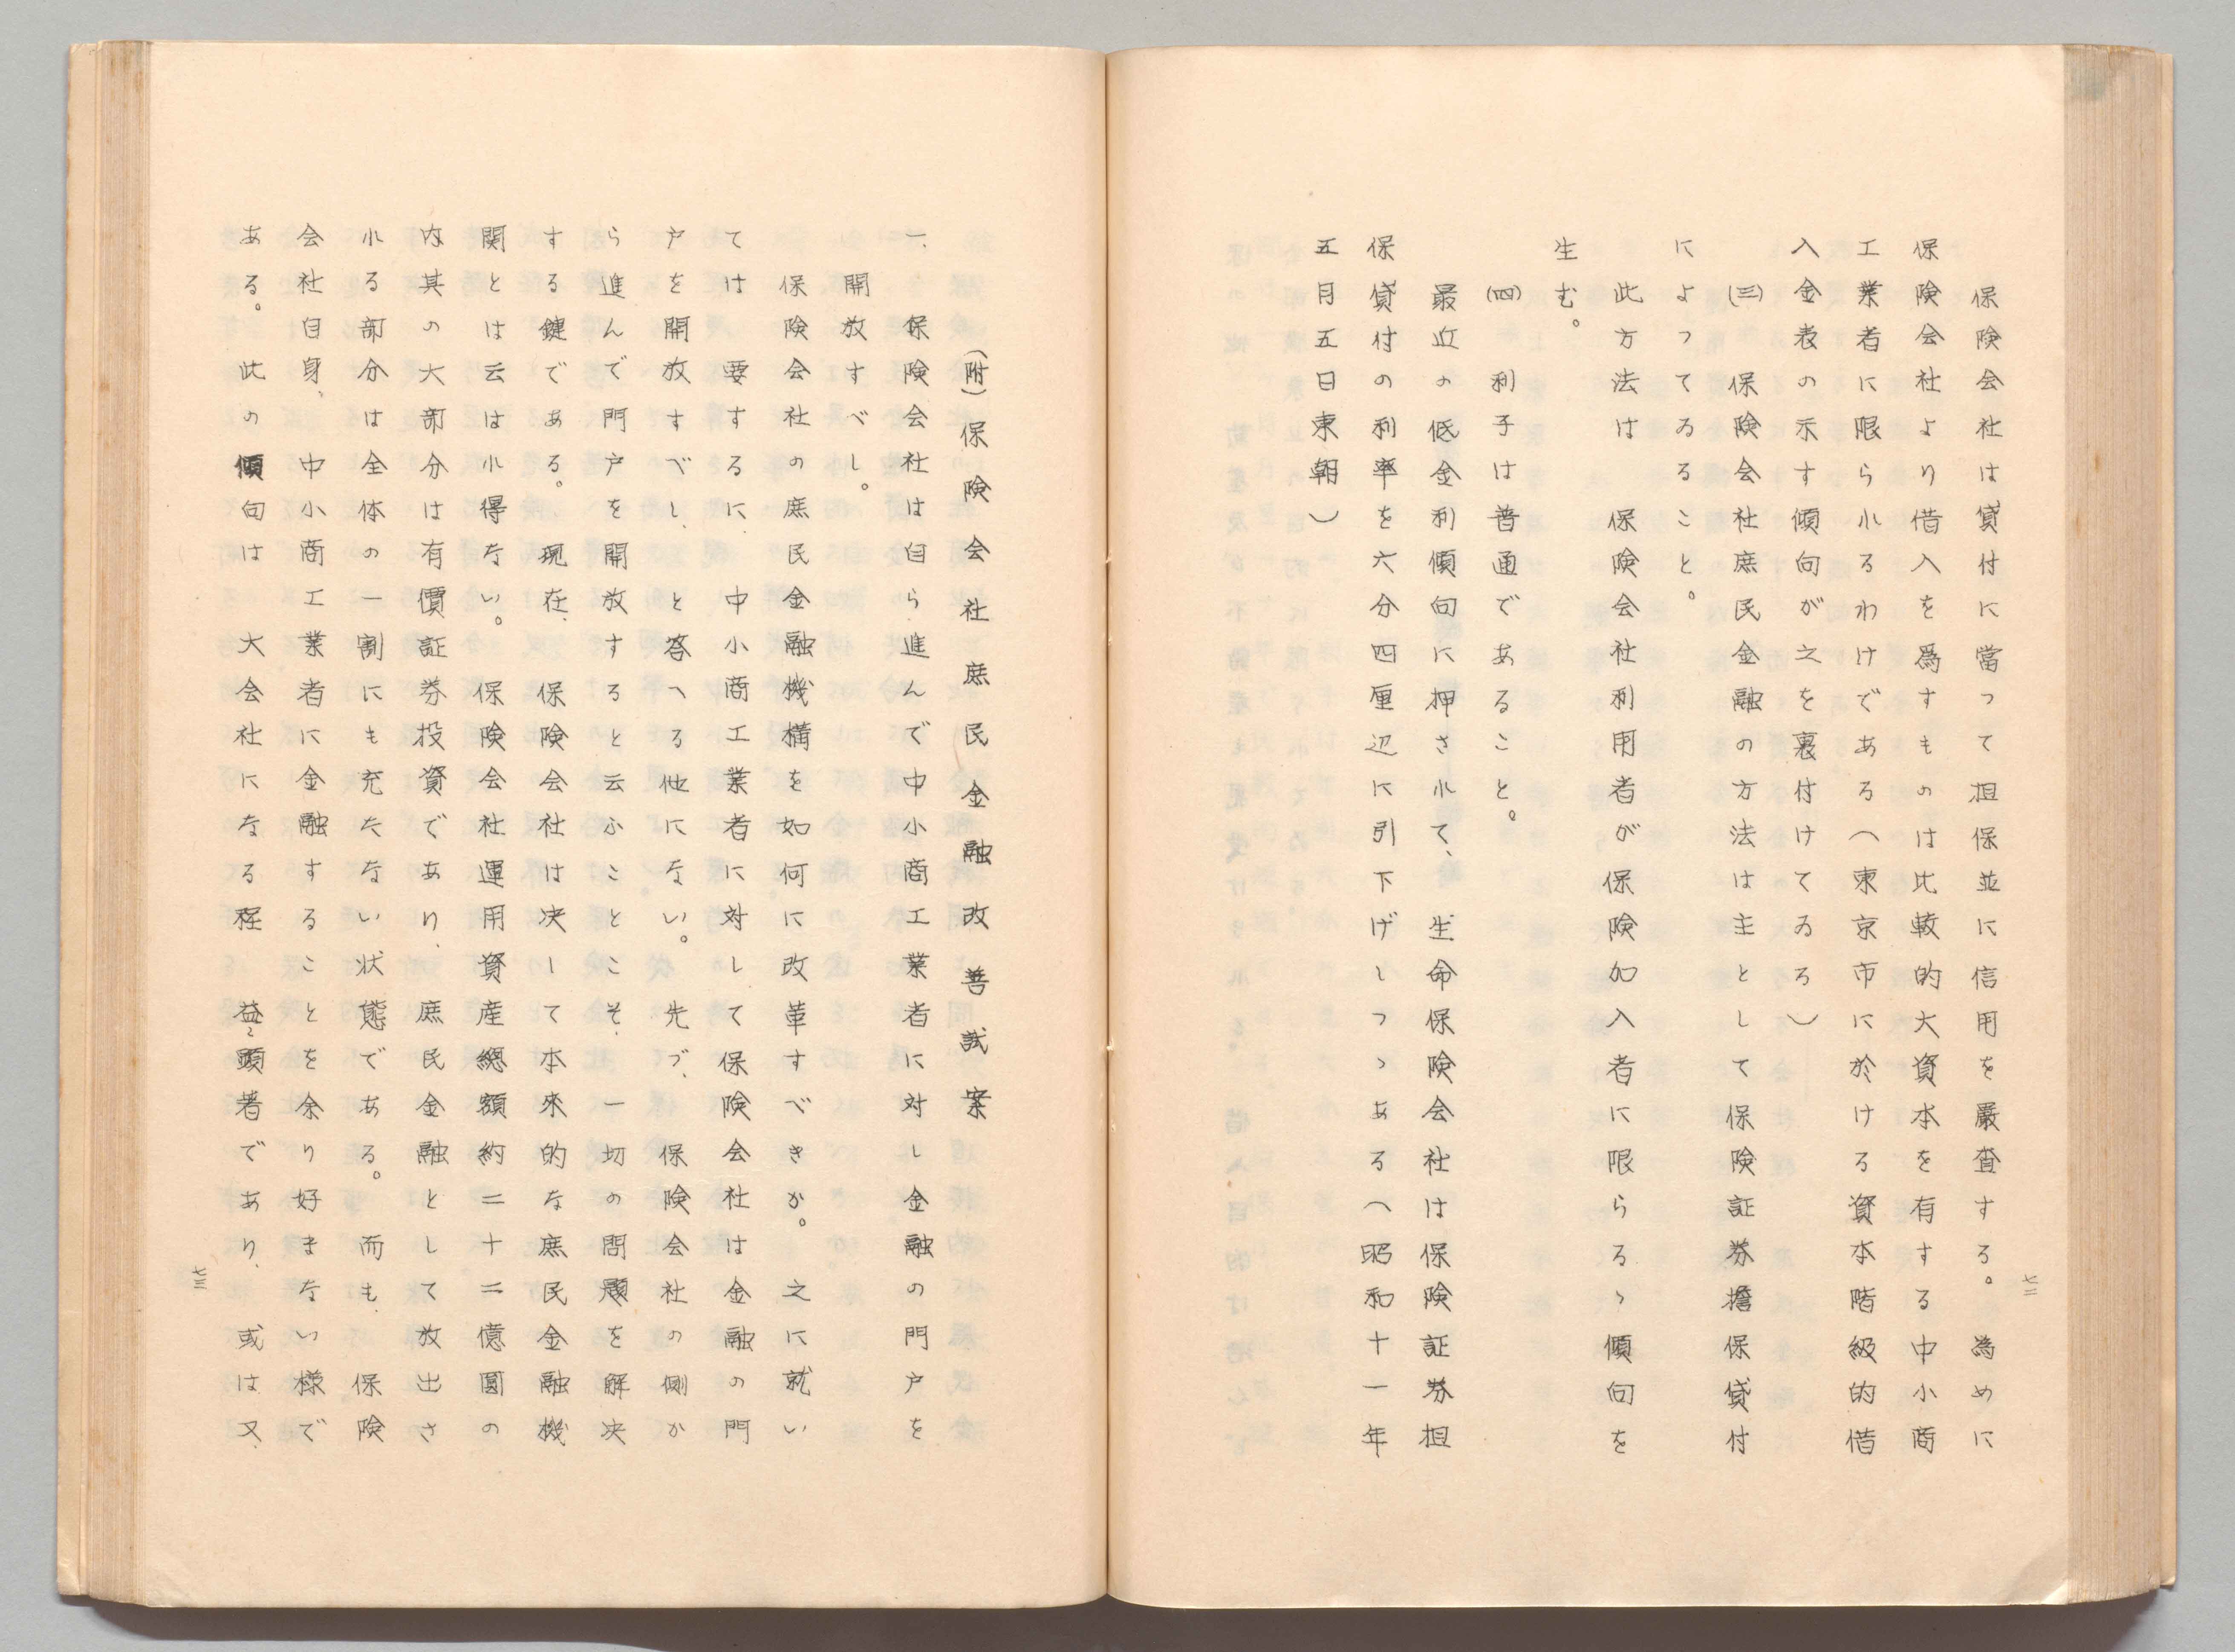 保険会社は貸付に當って担保並に信用を嚴査する。為めに
保険会社より借入を爲すものは比較的大資本を有する中小商
工業者に限られるわけである（東京市に於ける資本階級的借
入金表の示す傾向が之を裏付けてゐる）
㈢　保険会社庶民金融の方法は主として保険証券擔保貸付
によってゐること。
此方法は　保険会社利用者が保険加入者に限らるゝ傾向を
生む。
㈣　利子は普通であること。
最近の低金利傾向に押されて、生命保険会社は保険証券担
保貸付の利率を六分四厘辺に引下げしつゝある（昭和十一年
五月五日東朝）
七二
（附）保険会社庶民金融改善試案
一、保険会社は自ら進んで中小商工業者に対し金融の門戸を
開放すべし。
保険会社の庶民金融機構を如何に改革すべきか。之に就い
ては　要するに、中小商工業者に対して保険会社は金融の門
戸を開放すべし、と答へる他にない。先づ、保険会社の側か
ら進んで門戸を開放すると云ふことこそ、一切の問題を解決
する鍵である。現在、保険会社は决して本來的な庶民金融機
関とは云はれ得ない。保険会社運用資産總額約二十二億圓の
内其の大部分は有價証券投資であり、庶民金融として放出さ
れる部分は全体の一割にも充たない状態である。而も、保険
会社自身、中小商工業者に金融することを余り好まない様で
ある。此の傾向は　大会社になる程　益〻顕著であり、或は又、
七三